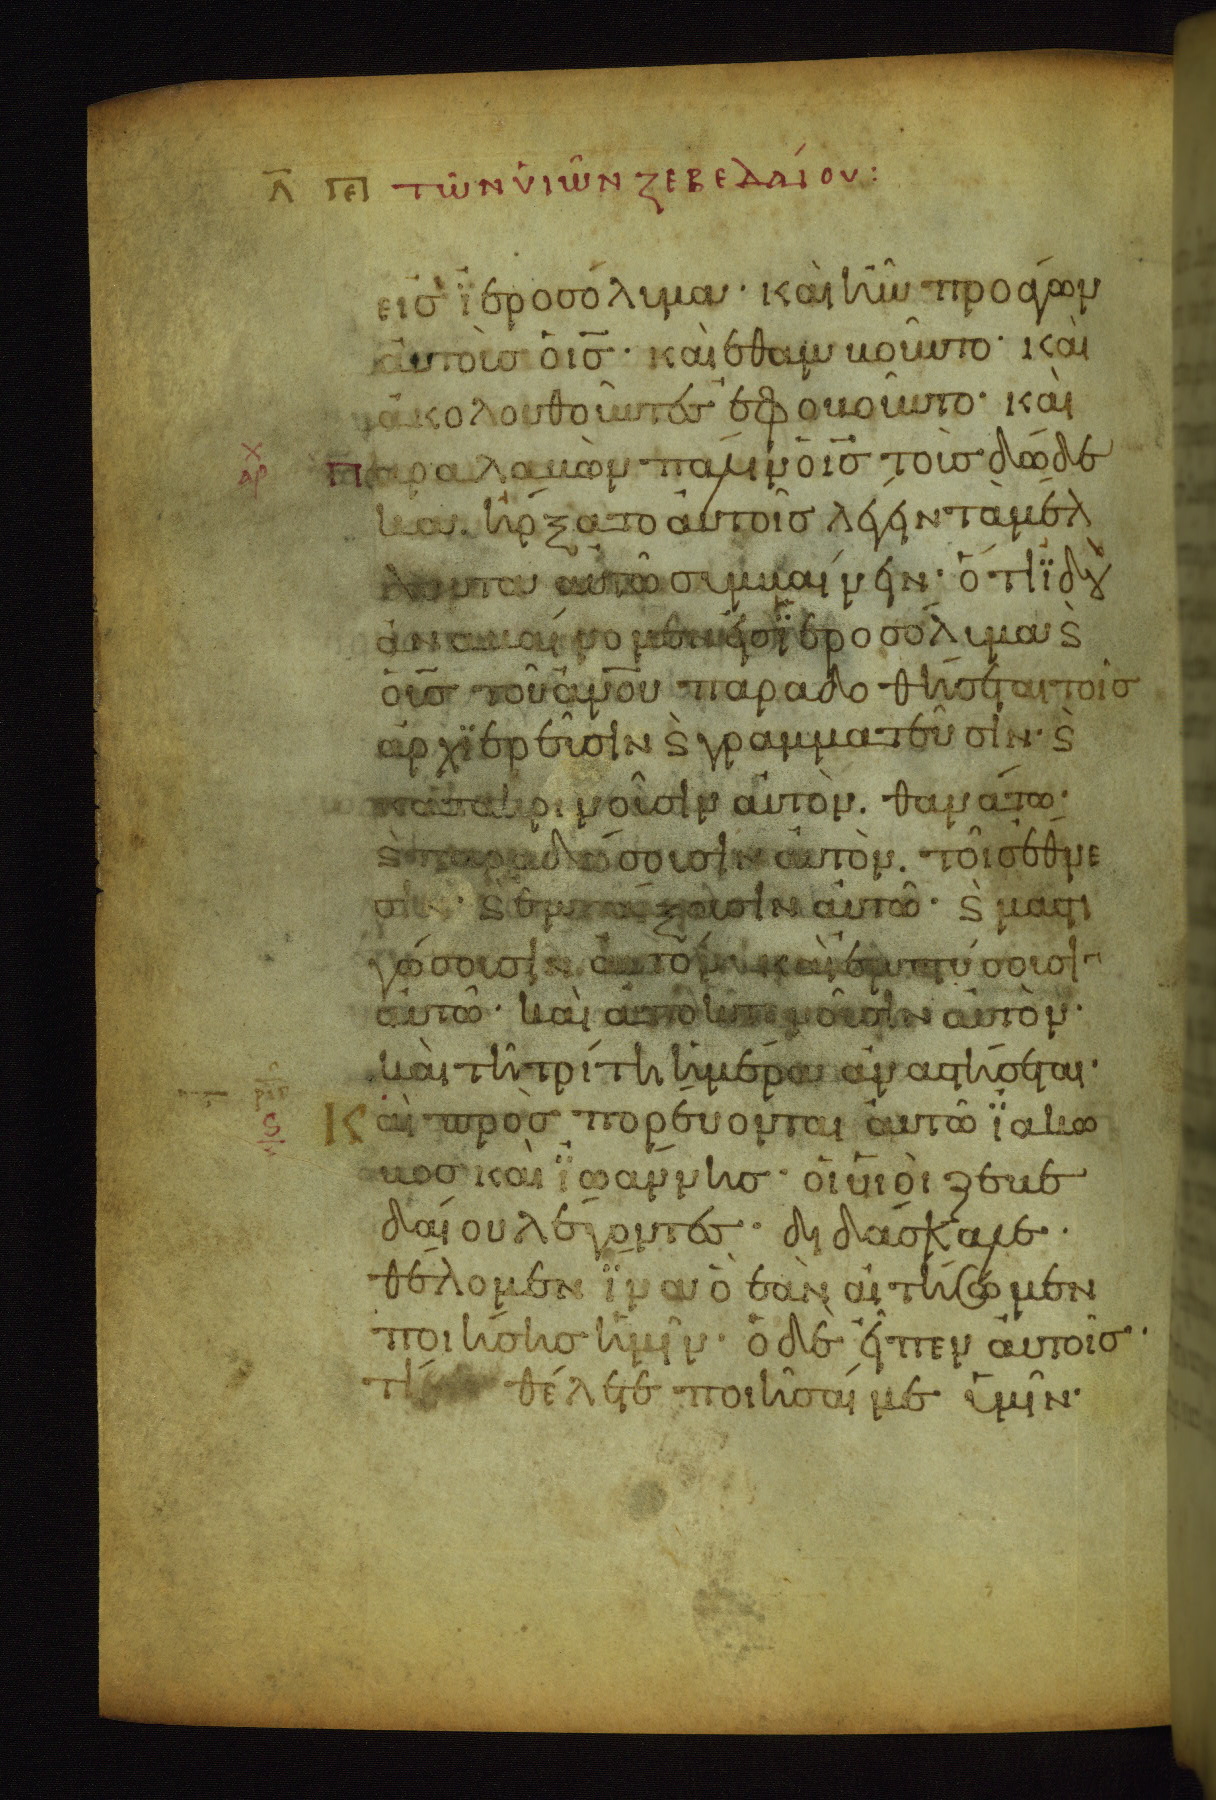 Λ ΠΕ τῶν υἱῶν ζεβεδαίου:
εἰς ἱεροσόλυμα· καὶ ἦν προάγων
αὐτοὺς ὁ ι̅ς̅· καὶ ἐθαμβοῦντο· καὶ
ἀκολουθοῦντες ἐφοβοῦντο· καὶ
χ
αρ παραλαβὼν πάλιν ὁ ι̅ς̅ τοὺς δώδε
κα. ἤρξατο αὐτοῖς λέγειν τὰ μέλ
λοντα αὐτῶ συμβαίνειν· ὅτι ἰδοὺ
ἀναβαίνομεν εἰς ἱεροσόλυμα ϛ
ὁ υ̅ς̅ τοῦ α̅ν̅ο̅υ̅ παραδοθήσεται τοῖς
ἀρχιερεῦσιν ϛ γραμματεῦσιν· ϛ
κατακρινοῦσιν αὐτὸν. θανάτω·
ϛ παραδώσουσιν αὐτὸν. τοῖς ἔθνε
σιν· ϛ ἐμπαίξουσιν αὐτῶ· ϛ μαστι
γώσουσιν αὐτὸν καὶ ἐμπτύσουσιν
αὐτῶ· καὶ ἀποκτενοῦσιν αὐτὸν·
καὶ τῆ τρίτη ἡμέρα ἀναστήσεται·
Καὶ προσπορεύονται αὐτῶ ἰάκω
βος καὶ ἰωάννης· οἱ υἱοὶ ζεβε
δαίου λέγοντες· διδάσκαλε·
θέλομεν ἵνα ὃ ἐὰν αἰτήσωμεν
ποιήσης ἡμῖν· ὁ δὲ εἶπεν αὐτοῖς·
τί θέλετε ποιῆσαί με ὑμῖν·